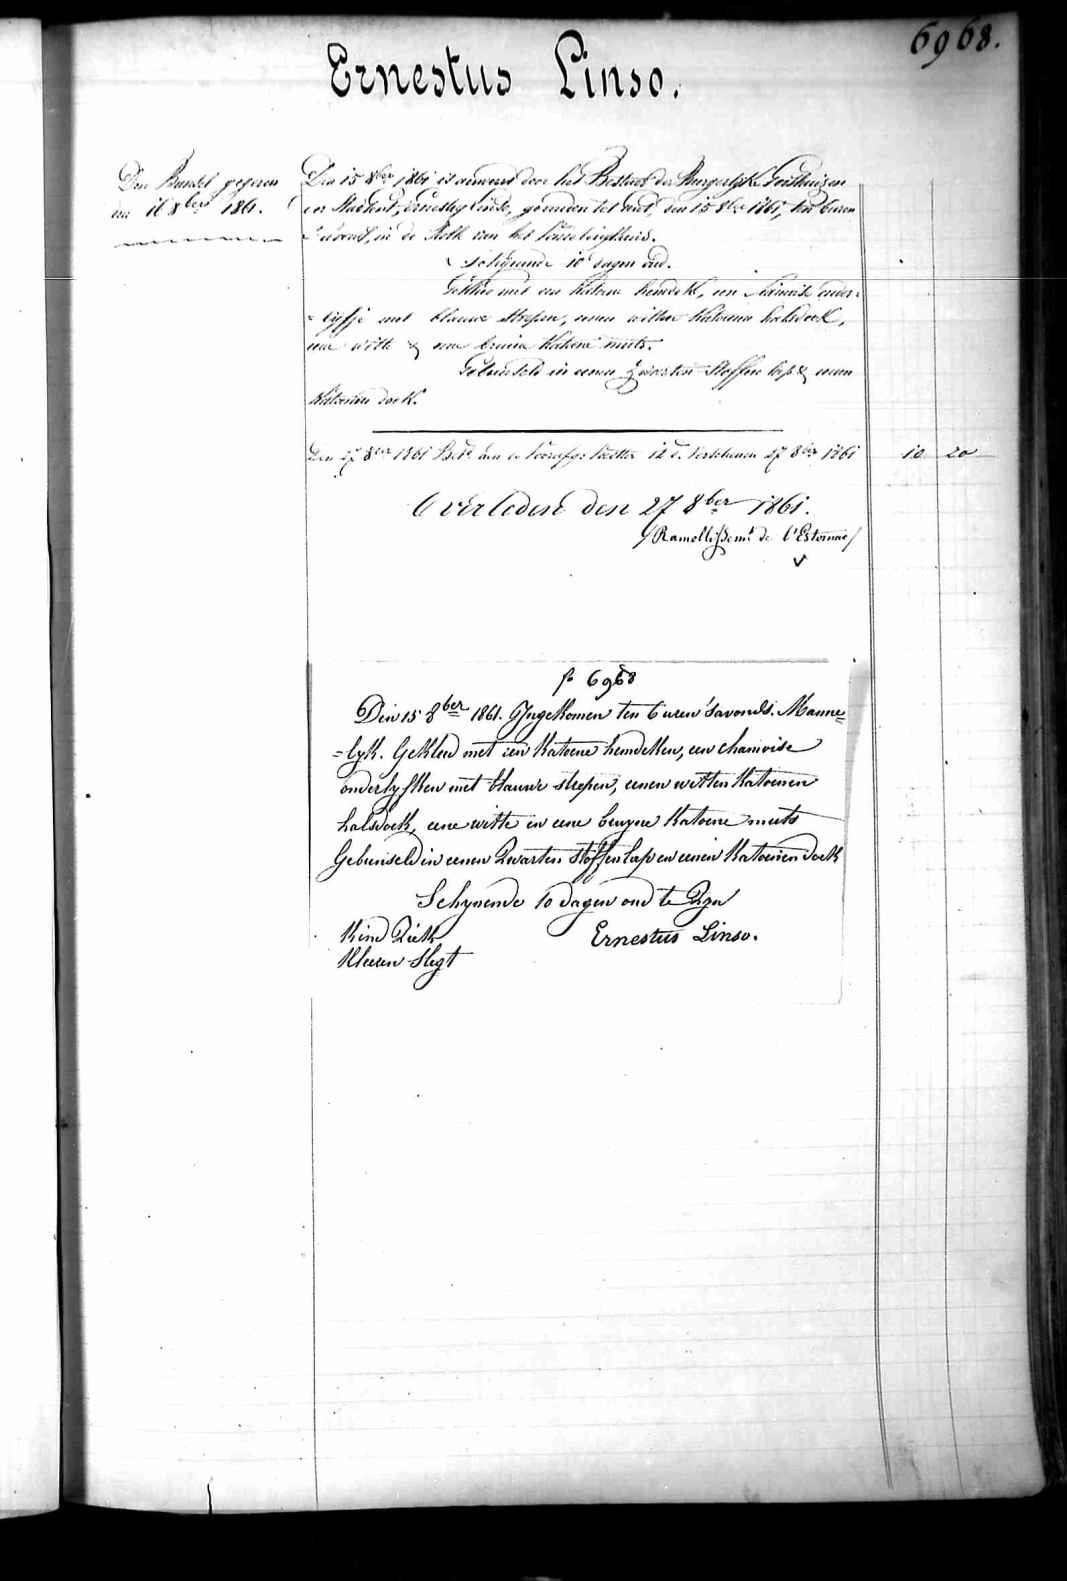 6968.
Ernestus Linso.
Den Bundel gegeven
den 16 8ber 1861.
Den 15 8ber 1861 is aanveerd door het Bestuur der Burgerlyke Godshuizen
der Stad Ernestus Linso, gevonden den 15 8ber 1861, ten 6 uren
's avonds, in de Rolle van het Vondelinghuis.
Schynende 10 dagen oud.
Gekleed met een katoene hemdeke, een onder-
= lyfje met blauwe strepen, eenen witten katoenen halsdoek,
eene witte & eene bruine katoene muts.
Gebunseld in eenen zwarten Stoffen lap & eenen
katoenen doek.
Den 27 8ber 1861 12 d. Verschenen 27 8ber 1861 10 20
Overleden den 27 8ber 1861.
/Ramollissemt de l'Estomac/
fo 6968
Den 15 8ber 1861. Ingekomen ten 6 uren 's avonds. Manne=
= lyk. Gekleed met een katoene hemdeken, een chamoise
onderlyfken met blauwe strepen, eenen witten katoenen
halsdoek, eene witte en eene bruyne katoene muts
Gebunseld in eenen Zwarten Stoffen lap en eenen katoenen doek
Schynende 10 dagen oud te Zyn
Kind Ziek Ernestus Linso.
Kleeren Slegt